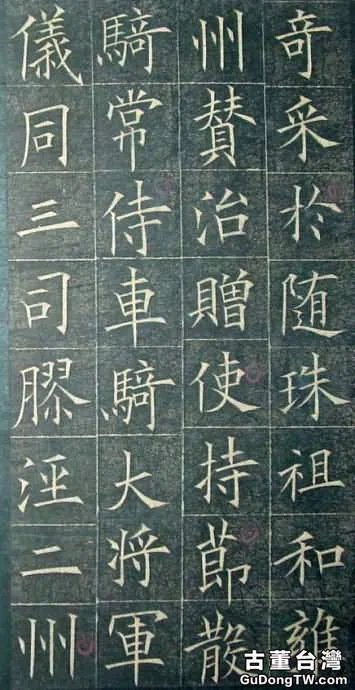 奇采於随珠祖和雍
州賛治贈使持節散
騎常侍車騎大将軍
儀同三司膠涇二州
古董台灣
GuDongTW.com